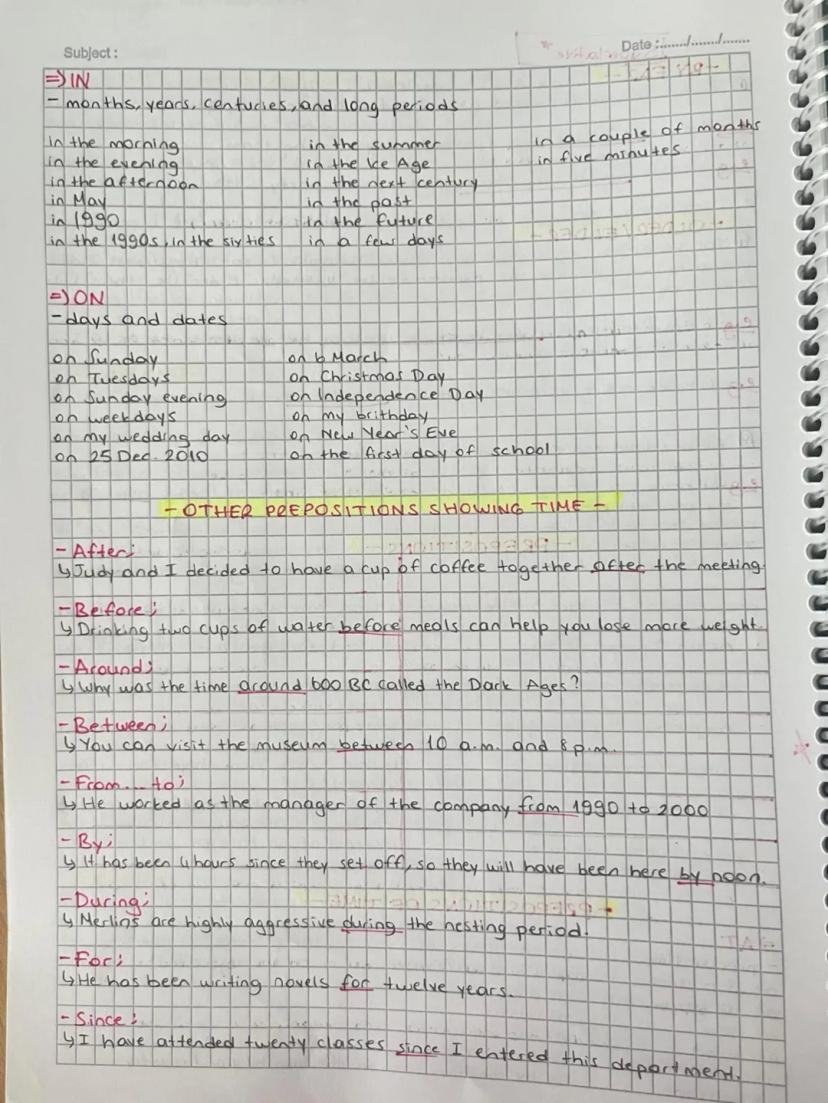 Subject :
Date :......./......./.......
⇒ IN
- months, years, centuries, and long periods
in the morning in the summer in a couple of months
in the evening in the Ice Age in five minutes
in the afternoon in the next century
in May in the past
in 1990 in the future
in the 1990s, in the sixties in a few days
⇒ ON
- days and dates
on Sunday on 6 March
on Tuesdays on Christmas Day
on Sunday evening on Independence Day
on weekdays on my brithday
on my wedding day on New Year's Eve
on 25 Dec. 2010 on the first day of school
- OTHER PREPOSITIONS SHOWING TIME -
- After;
↳ Judy and I decided to have a cup of coffee together after the meeting.
- Before;
↳ Drinking two cups of water before meals can help you lose more weight.
- Around;
↳ Why was the time around 600 BC called the Dark Ages?
- Between;
↳ You can visit the museum between 10 a.m. and 8 p.m.
- From... to;
↳ He worked as the manager of the company from 1990 to 2000
- By;
↳ It has been 4 hours since they set off, so they will have been here by noon.
- During;
↳ Merlins are highly aggressive during the nesting period.
- For;
↳ He has been writing novels for twelve years.
- Since;
↳ I have attended twenty classes since I entered this department.